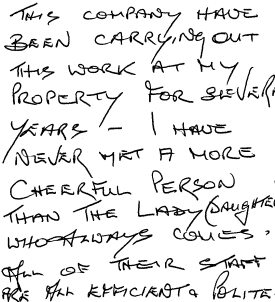 THIS COMPANY HAVE
BEEN CARRYING OUT
THIS WORK AT MY
PROPERTY FOR SEVERA
YEARS - I HAVE
NEVER MET A MORE
CHEERFUL PERSON
THAN THE LADY (DAUGHTE
WHO ALWAYS COMES.
ALL OF THEIR STAFF
ARE ALL EFFICIENT & POLITE.